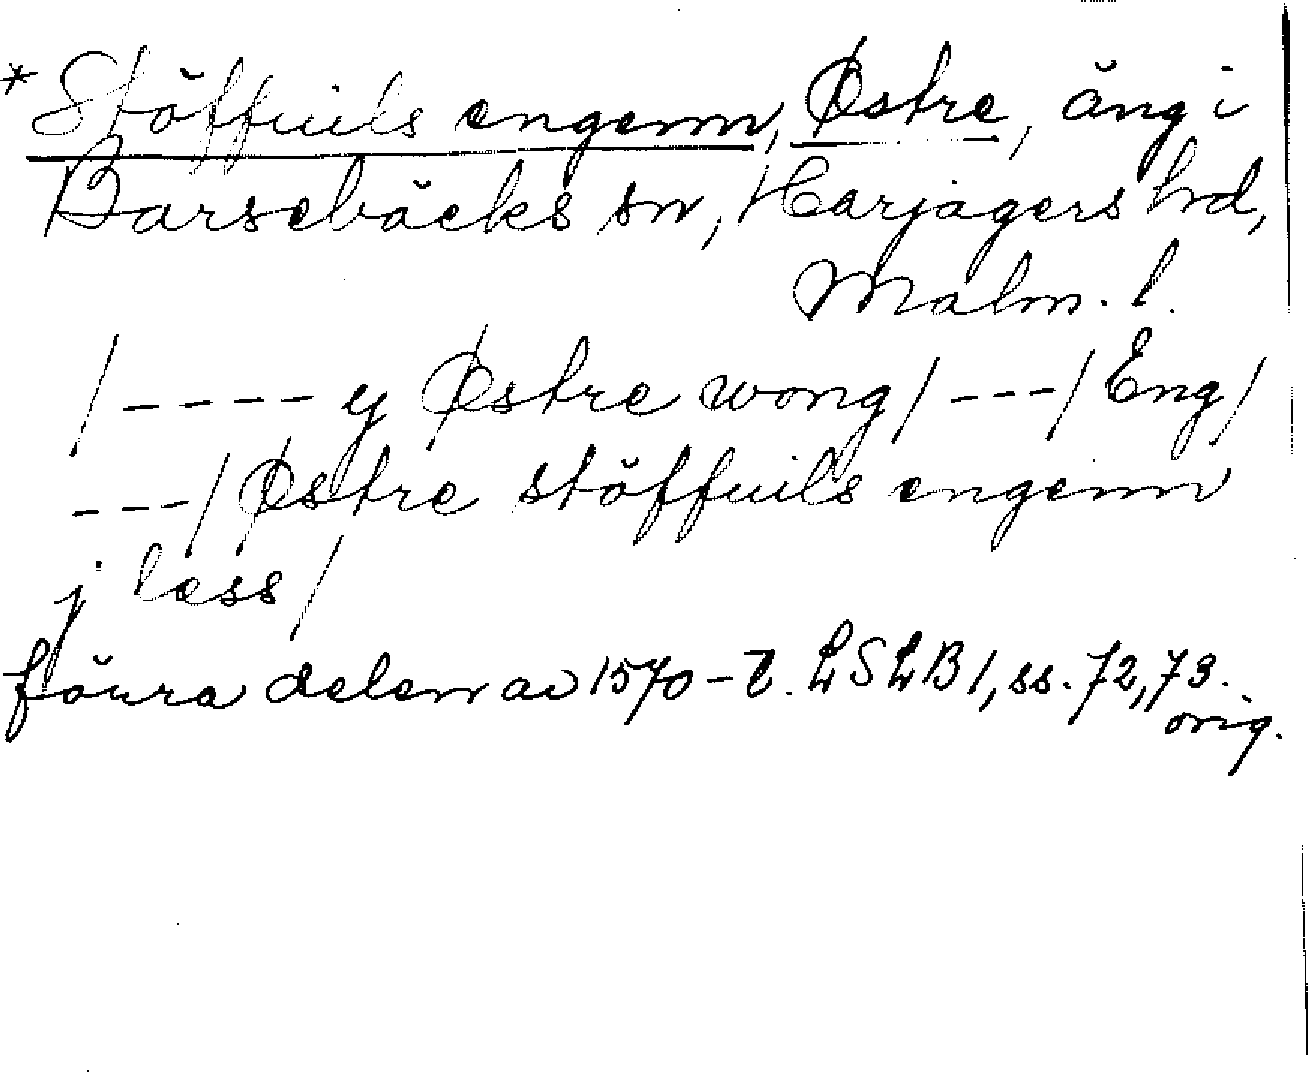 *Stöffuils engenn, Østre, äng i
Barsebäcks sn, Harjagers hd,
Malm. l.
/---- y Østre wong/ ---/Eng/
---/Østre stöffuils engenn
j less/
förra delen av 1570-t. LSLB 1, ss. 72, 73.
orig.